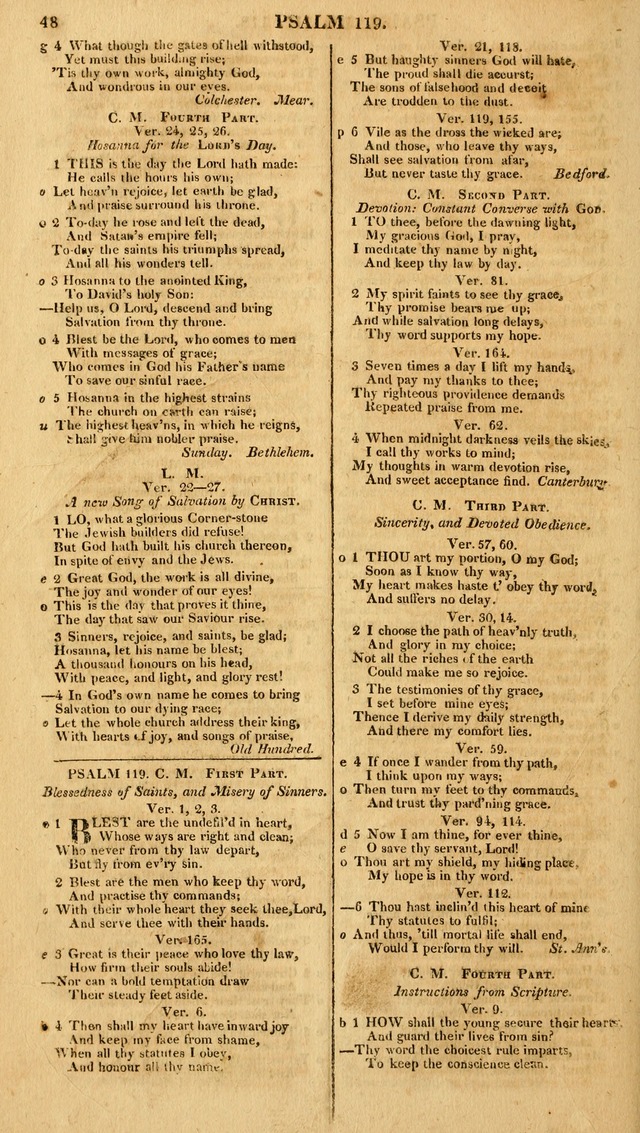 48 PSALM 119.
g 4 What though the gates of hell withstood,
Yet must this building rise;
'Tis thy own work, almighty God,
And wondrous in our eyes.
Colchester. Mear.
C. M. Fourth Part.
Ver. 24, 25, 26.
Hosanna for the Lord's Day.
1 THIS is the day the Lord hath made:
He calls the hours his own;
o Let heav'n rejoice, let earth be glad,
And praise surround his throne.
o 2 To-day he rose and left the dead,
And Satan's empire fell;
To-day the saints his triumphs spread,
And all his wonders tell.
o 3 Hosanna to the anointed King,
To David's holy Son:
—Help us, O Lord, descend and bring
Salvation from thy throne.
o 4 Blest be the Lord, who comes to men
With messages of grace;
Who comes in God his Father's name
To save our sinful race.
o 5 Hosanna in the highest strains
The church on earth can raise;
u The highest heav'ns, in which he reigns,
Shall give him nobler praise.
Sunday. Bethlehem.
L. M.
Ver. 22—27.
A new Song of Salvation by Christ.
1 LO, what a glorious Corner-stone
The Jewish builders did refuse!
But God hath built his church thereon,
In spite of envy and the Jews.
e 2 Great God, the work is all divine,
The joy and wonder of our eyes!
o This is the day that proves it thine,
The day that saw our Saviour rise.
3 Sinners, rejoice, and saints, be glad;
Hosanna, let his name be blest;
A thousand honours on his head,
With peace, and light, and glory rest!
—4 In God's own name he comes to bring
Salvation to our dying race;
o Let the whole church address their king,
With hearts of joy, and songs of praise,
Old Hundred.
PSALM 119. C. M. First Part.
Blessedness of Saints, and Misery of Sinners.
Ver. 1, 2, 3.
1 BLEST are the undefil'd in heart,
Whose ways are right and clean;
Who never from thy law depart,
But fly from ev'ry sin.
2 Blest are the men who keep thy word,
And practise thy commands;
o With their whole heart they seek thee, Lord,
And serve thee with their hands.
Ver. 165.
e 3 Great is their peace who love thy law,
How firm their souls abide!
—Nor can a bold temptation draw
Their steady feet aside.
Ver. 6.
4 Then shall my heart have inward joy
And keep my face from shame,
When all thy statutes I obey,
And honour all thy name.
Ver. 21, 118.
e 5 But haughty sinners God will hate,
The proud shall die accurst;
The sons of falsehood and deceit
Are trodden to the dust.
Ver. 119, 155.
p 6 Vile as the dross the wicked are;
And those, who leave thy ways,
Shall see salvation from afar,
But never taste thy grace. Bedford.
C. M. Second Part.
Devotion: Constant Converse with God.
1 TO thee, before the dawning light,
My gracious God, I pray,
I meditate thy name by night,
And keep thy law by day.
Ver. 81.
2 My spirit faints to see thy grace,
Thy promise bears me up;
And while salvation long delays,
Thy word supports my hope.
Ver. 164.
3 Seven times a day I lift my hands,
And pay my thanks to thee;
Thy righteous providence demands
Repeated praise from me.
Ver. 62.
4 When midnight darkness veils the skies,
I call thy works to mind;
My thoughts in warm devotion rise,
And sweet acceptance find. Canterbury.
C. M. Third Part.
Sincerity, and Devoted Obedience.
Ver. 57, 60.
o 1 THOU art my portion, O my God;
Soon as I know thy way,
My heart makes haste t' obey thy word,
And suffers no delay.
Ver. 30, 14.
2 I choose the path of heav'nly truth,
And glory in my choice;
Not all the riches of the earth
Could make me so rejoice.
3 The testimonies of thy grace,
I set before mine eyes;
Thence I derive my daily strength,
And there my comfort lies.
Ver. 59.
e 4 If once I wander from thy path,
I think upon my ways;
o Then turn my feet to thy commands,
And trust thy pard'ning grace.
Ver. 94, 114.
d 5 Now I am thine, for ever thine,
e O save thy servant, Lord!
o Thou art my shield, my hiding place,
My hope is in thy word.
Ver. 112.
—6 Thou hast inclin'd this heart of mine
Thy statutes to fulfil;
o And thus, 'till mortal life shall end,
Would I perform thy will. St. Ann's.
C. M. Fourth Part.
Instructions from Scripture.
Ver. 9.
b 1 HOW shall the young secure their hearts,
And guard their lives from sin?
—Thy word the choicest rule imparts,
To keep the conscience clean.